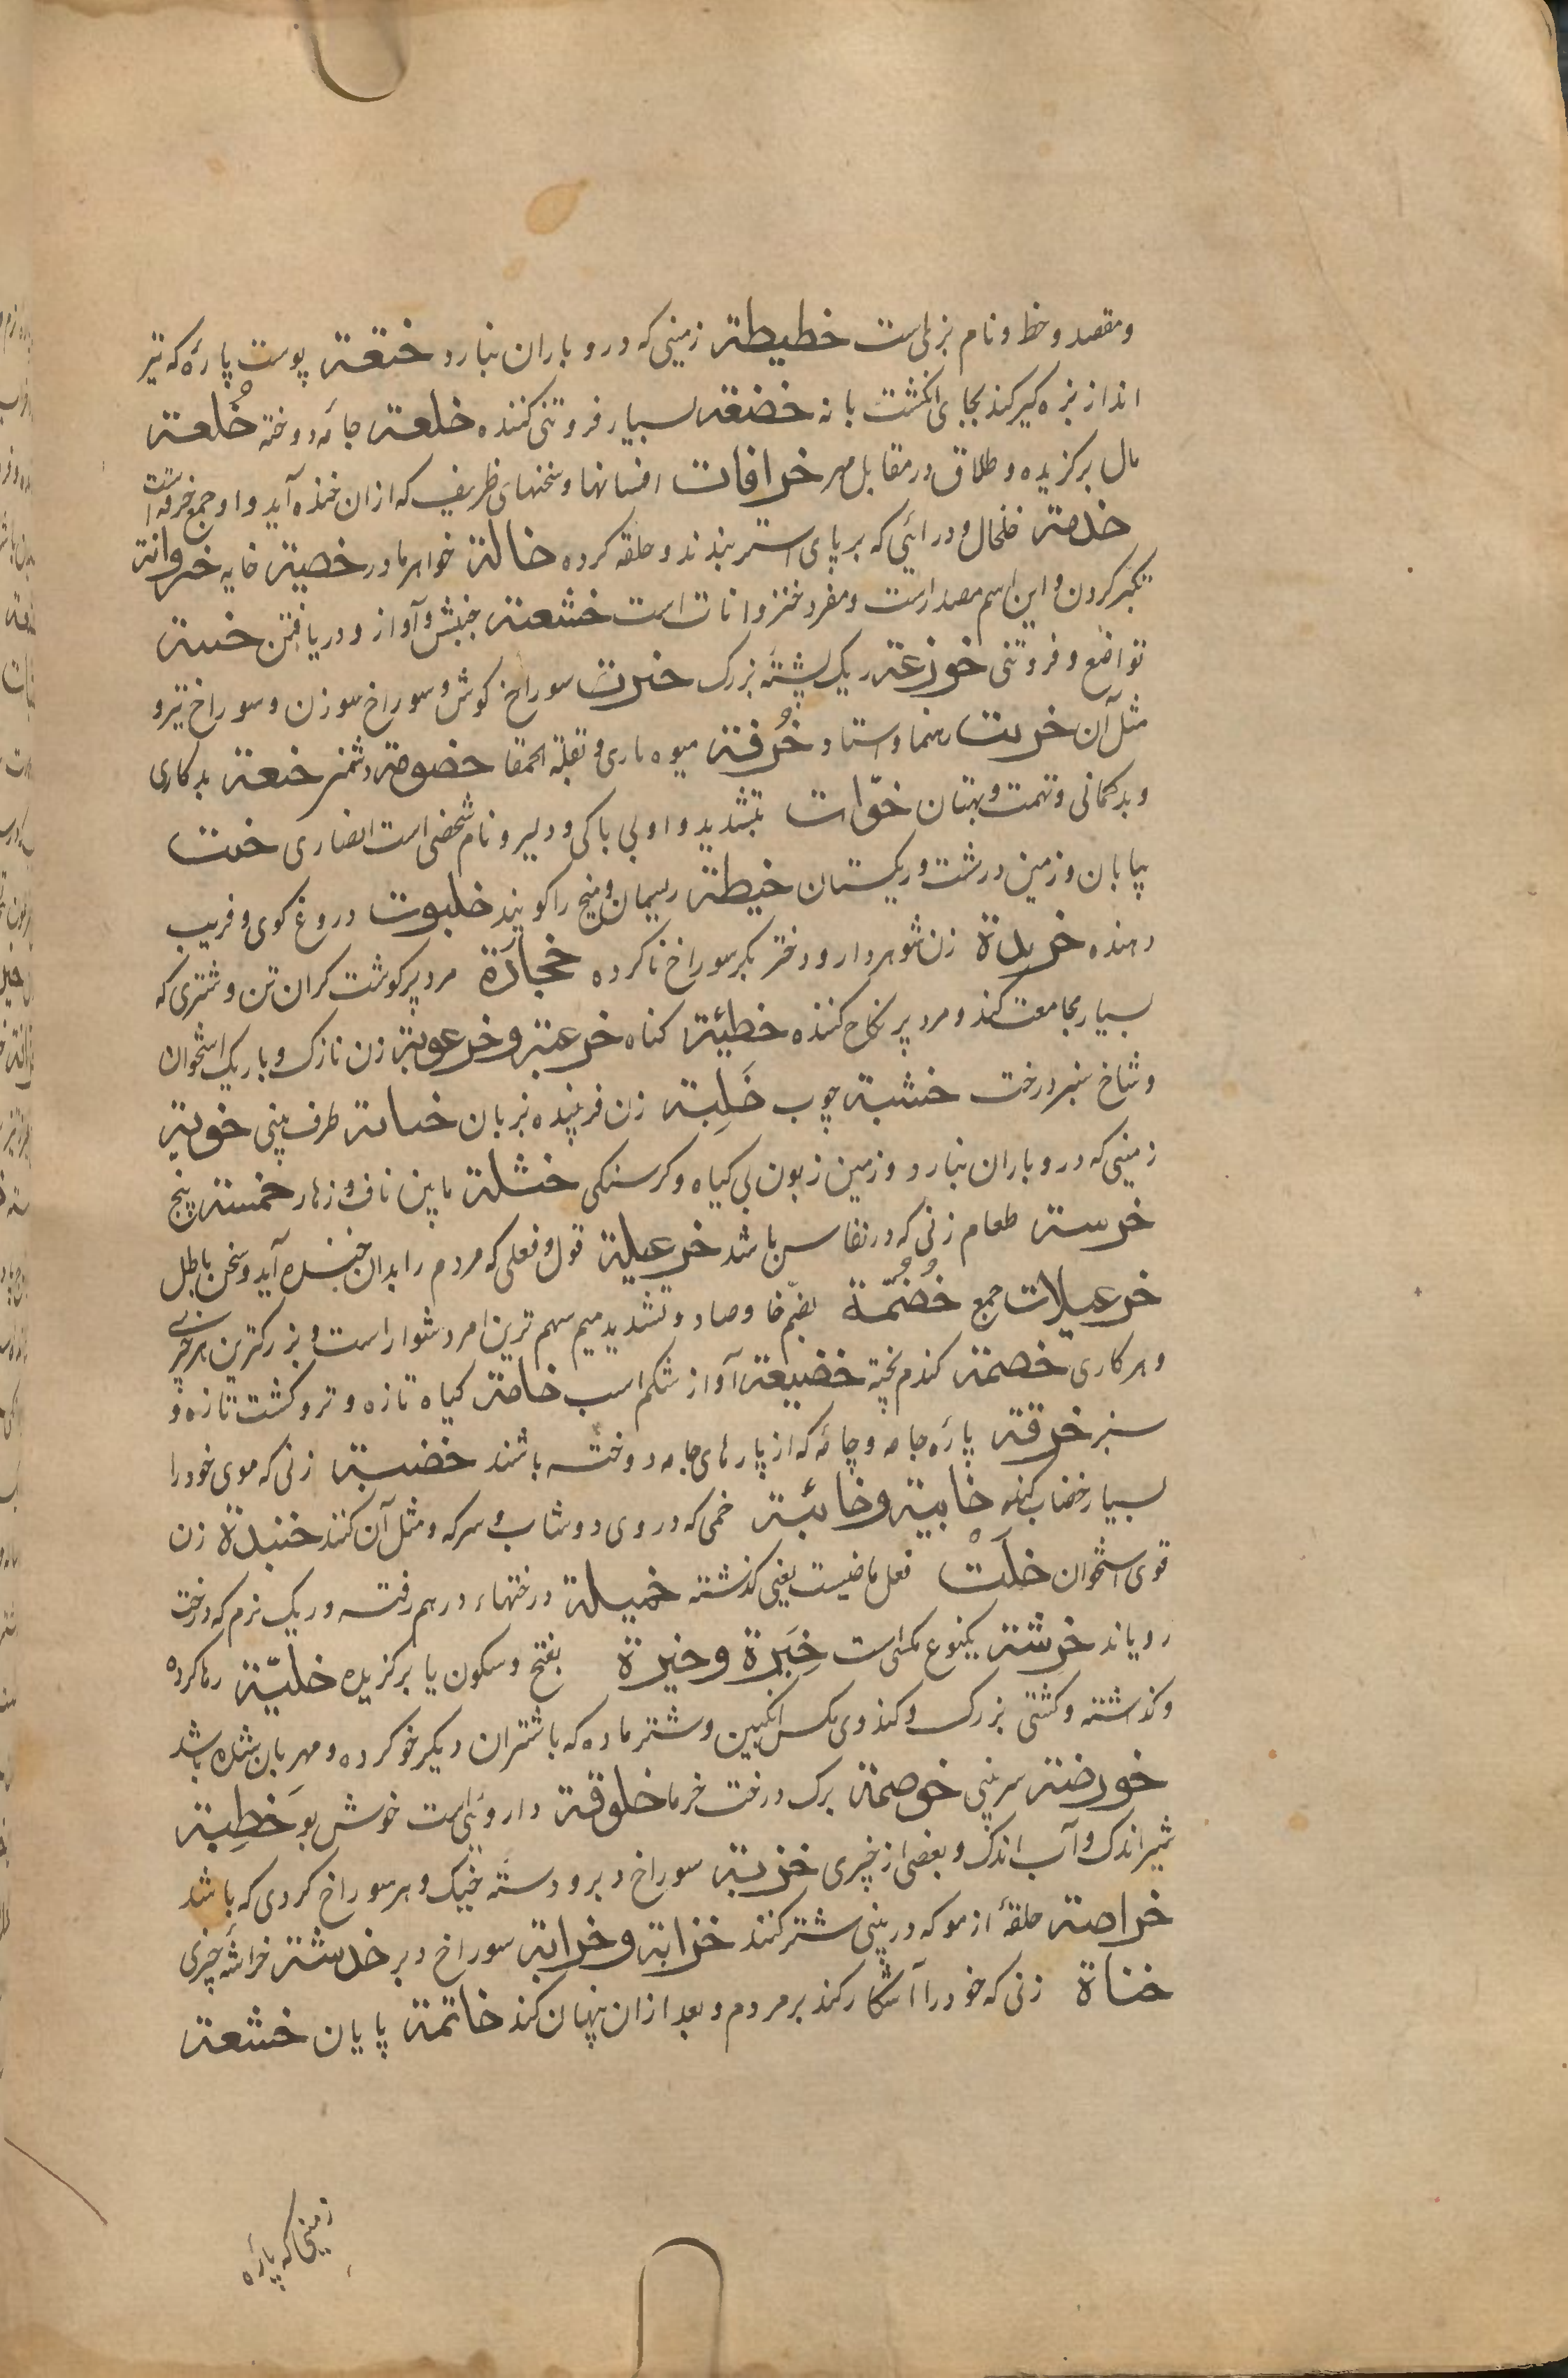 و مقصد و خط و نام بزی است خطیطة زمینی که درو باران نبارد ختعة پوست پارهٔ که تیر
انداز بزه گیر کند بجای انگشت بانه خضعة بسیار فروتنی کننده خلعة جامٔه دوخته خُلعة
مال برگزیده و طلاق در مقابل مهر خرافات افسانها و سخنهای ظریف که ازان خنده آید و او جمع خرافه است
خدمة خلخال و درائی که بر پای استر بندند و حلقه کرده خالة خواهر مادر خصیة خایه خنزوانة
تکبر کردن و این اسم مصدر است و مفرد خنزوانات است خشعة جنبش و آواز و دریافتن خبتة
تواضع و فروتنی خوزعة ریک پشتهٔ بزرک خرت سوراخ کوش و سوراخ سوزن و سوراخ تبر و
مثل آن خریت رهنما و استاد خُرفة میوه و بقلة الحمقا خصومة دشمنی ختعة بدکاری
و بدکمانی و تهمت و بهتان خوّات بتشدید واو بی باکی و دلیر و نام شخصی است انصاری خبت
بیابان و زمین درشت و ریکستان خیطة ریسمان و میخ را کویند خلبوت دروغ کوی و فریب
دهنده خریدة زن شوهردار و دختر بکر سوراخ ناکرده خُجَأَة مرد پر کوشت کران تن و شتری که
بسیار مجامعت کند و مرد پر نکاح کننده خطیئة کناه خرعبة و خرعوبة زن نازک و باریک استخوان
و شاخ سبز درخت خشبة چوب خَلِبة زن فریبنده بزبان خنابة طرف بینی خویة
زمینی که درو باران نبارد و زمین زبون بی کیاه و کرسنکی خثلة مابین ناف و زهار خمسة پنج
خرسة طعام زنی که در نفاس باشد خزعبیلة قول و فعلی که مردم را بدان خنده آید و سخن باطل
خزعبیلات جمع خُضُمَّة بضم خا و صاد و تشدید میم سهم ترین امر دشوار است و بزرکترین هر چیزی
و هر کاری خصمة کندم پخته خضیعة آواز شکم اسب خامة کیاه تازه و تر و کشت تازه و
سبز خرقة پارٔه جامه و جامٔه که از پارهای جامه دوخته باشند خضبة زنی که موی خود را
بسیار خضاب کند خابیة و خابئة خمی که در وی دوشاب و سرکه و مثل آن کنند خنبدة زن
قوی استخوان خلَتْ فعل ماضیست یعنی کذشته خمیلة درختهاء درهم رفته و ریک نرم که درخت
رویاند خرشة یکنوع مکس است خِیَرة و خیرة بفتح و سکون یا برکزیده خلیّة رها کرده
و کذاشته و کشتی بزرک و کندوی مکس انکبین و شتر ماده که با شتران دیکر خو کرده و مهربان شده باشد
خورضة سر بینی خوصة برک درخت خرما خلوقة داروئی است خوش بو خَطِبة
شیر اندک و آب اندک و بعضی از چیزی خزبة سوراخ دبر و دستهٔ خیک و هر سوراخ کردی که باشد
خراصة حلقهٔ از مو که در بینی شتر کنند خزابة و خرابة سوراخ دبر خدشة خراشهٔ چیزی
خناة زنی که خود را آشکار کند بر مردم و بعد ازان پنهان کند خاتمة پایان خشعة
زمینی که پارٔه